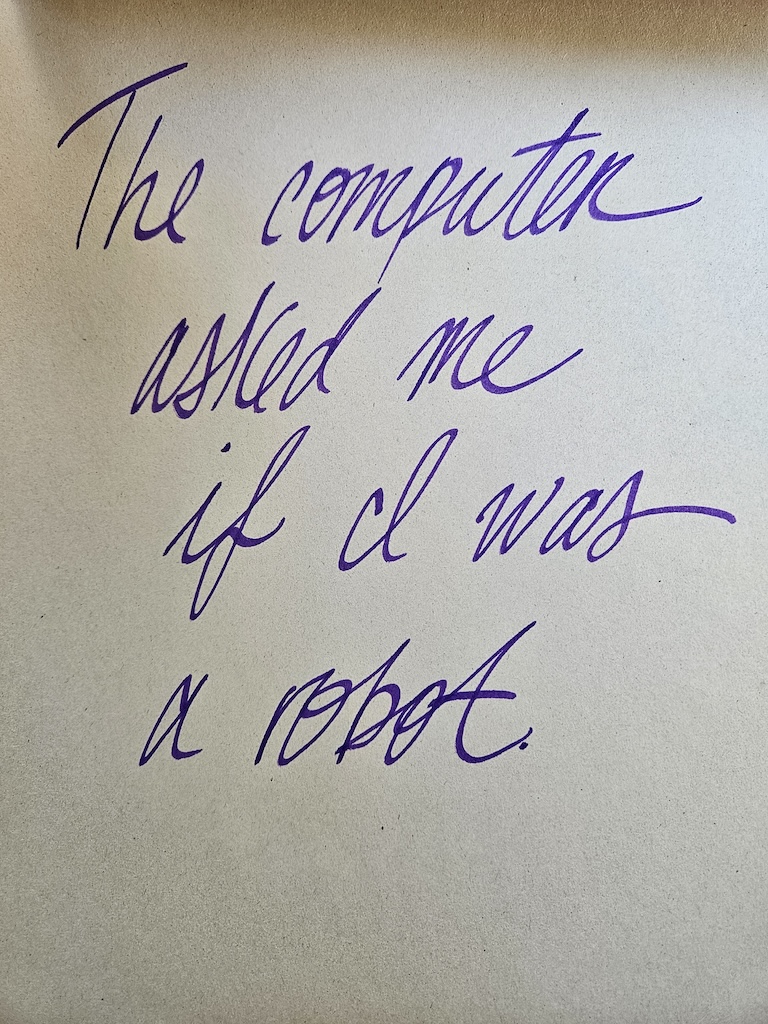 The computer
asked me
if I was
a robot.